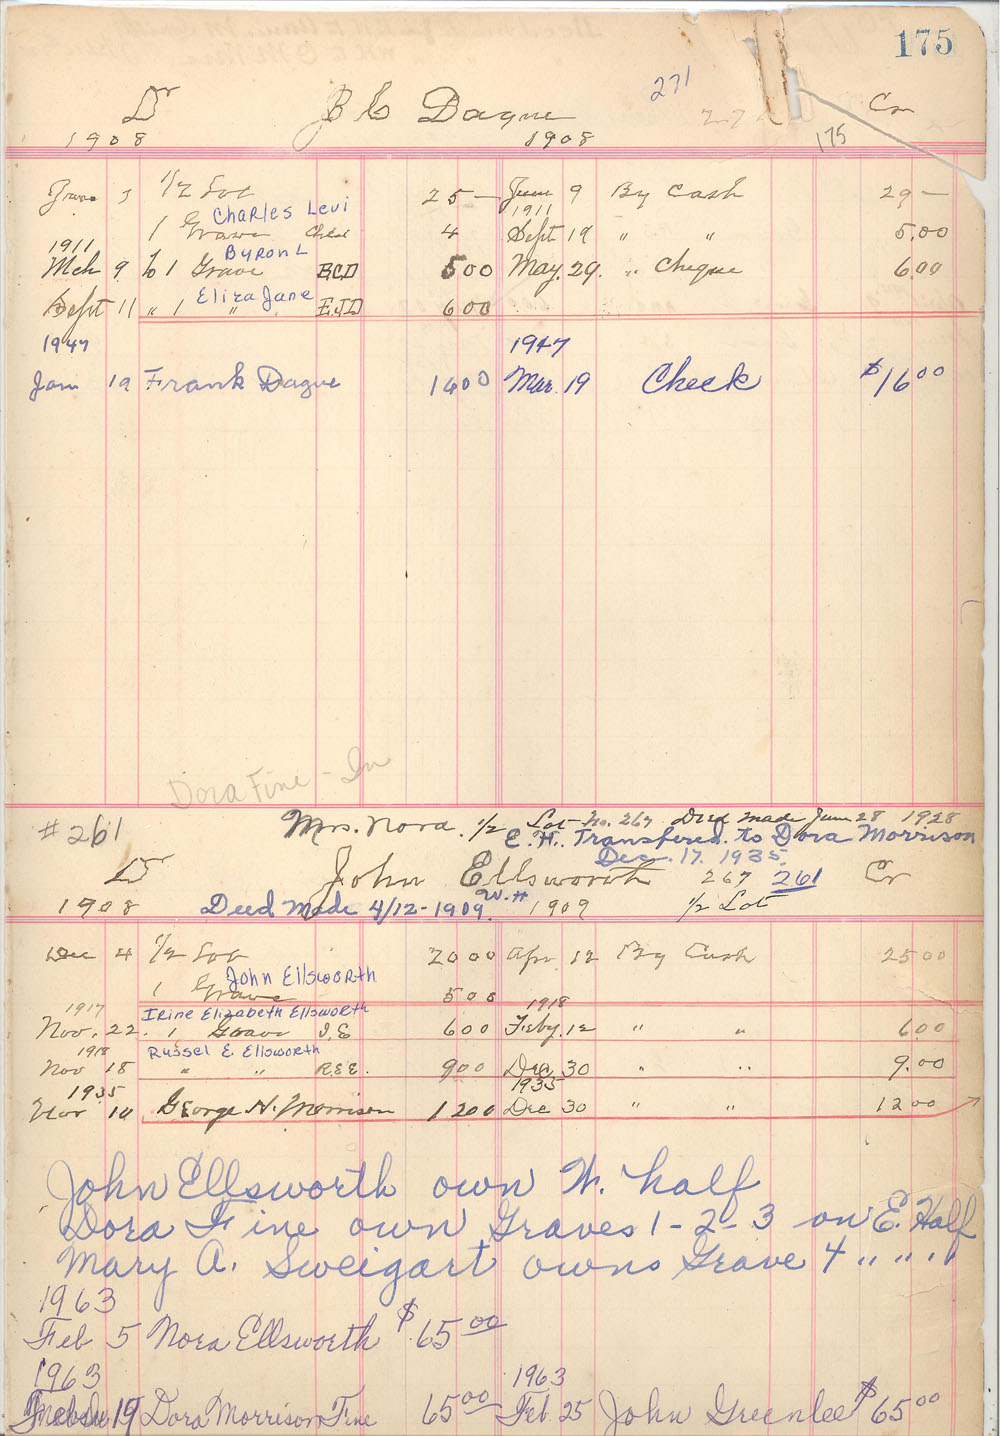 175
Dr B C Dague 271 Cr
1908 1908 175
June 5 1/2 Lot 25— June 9 By Cash 29—
Charles Levi 1911
1 Grave Child 4 Sept 19 " " 5.00
1911 Byron L
Mch 9 to 1 Grave BCD 500 May. 29. " Cheque 6.00
Eliza Jane
Sept 11 " 1 " EJD 600
1947 1947
Jan 19 Frank Dague 1600 Mar. 19 Check $16 00
Dora Fine - In
#261 Mrs. Nora. 1/2 Lot No. 267 Deed made June 28 1928
E. H. Transfered. to Dora Morrison
Dec. 17. 1935.
Dr John Ellsworth 267 261 Cr
1908 Deed Made 4/12-1909 W. H 1909 1/2 Lot
Dec 4 1/2 Lot 20 00 Apr 12 By Cash 25 00
John Ellsworth
1 Grave 500
1917 Irine Elizabeth Ellsworth 1918
Nov. 22. 1 Grave I.E 600 Feby. 12 " " 6.00
1918 Russel E. Ellsworth
Nov 18 " " R.E.E. 900 Dec 30 " " 9.00
1935 1935
Mar 10 George H. Morrison 1200 Dec 30 " " 12 00
John Ellsworth own W. half
Dora Fine own Graves 1-2-3 on E. Half
Mary A. Sweigart owns Grave 4 " " "
1963
Feb 5 Nora Ellsworth $65 00
1963 1963
19 Dora Morrison Fine 65 00 Feb. 25 John Greenlee $65 00